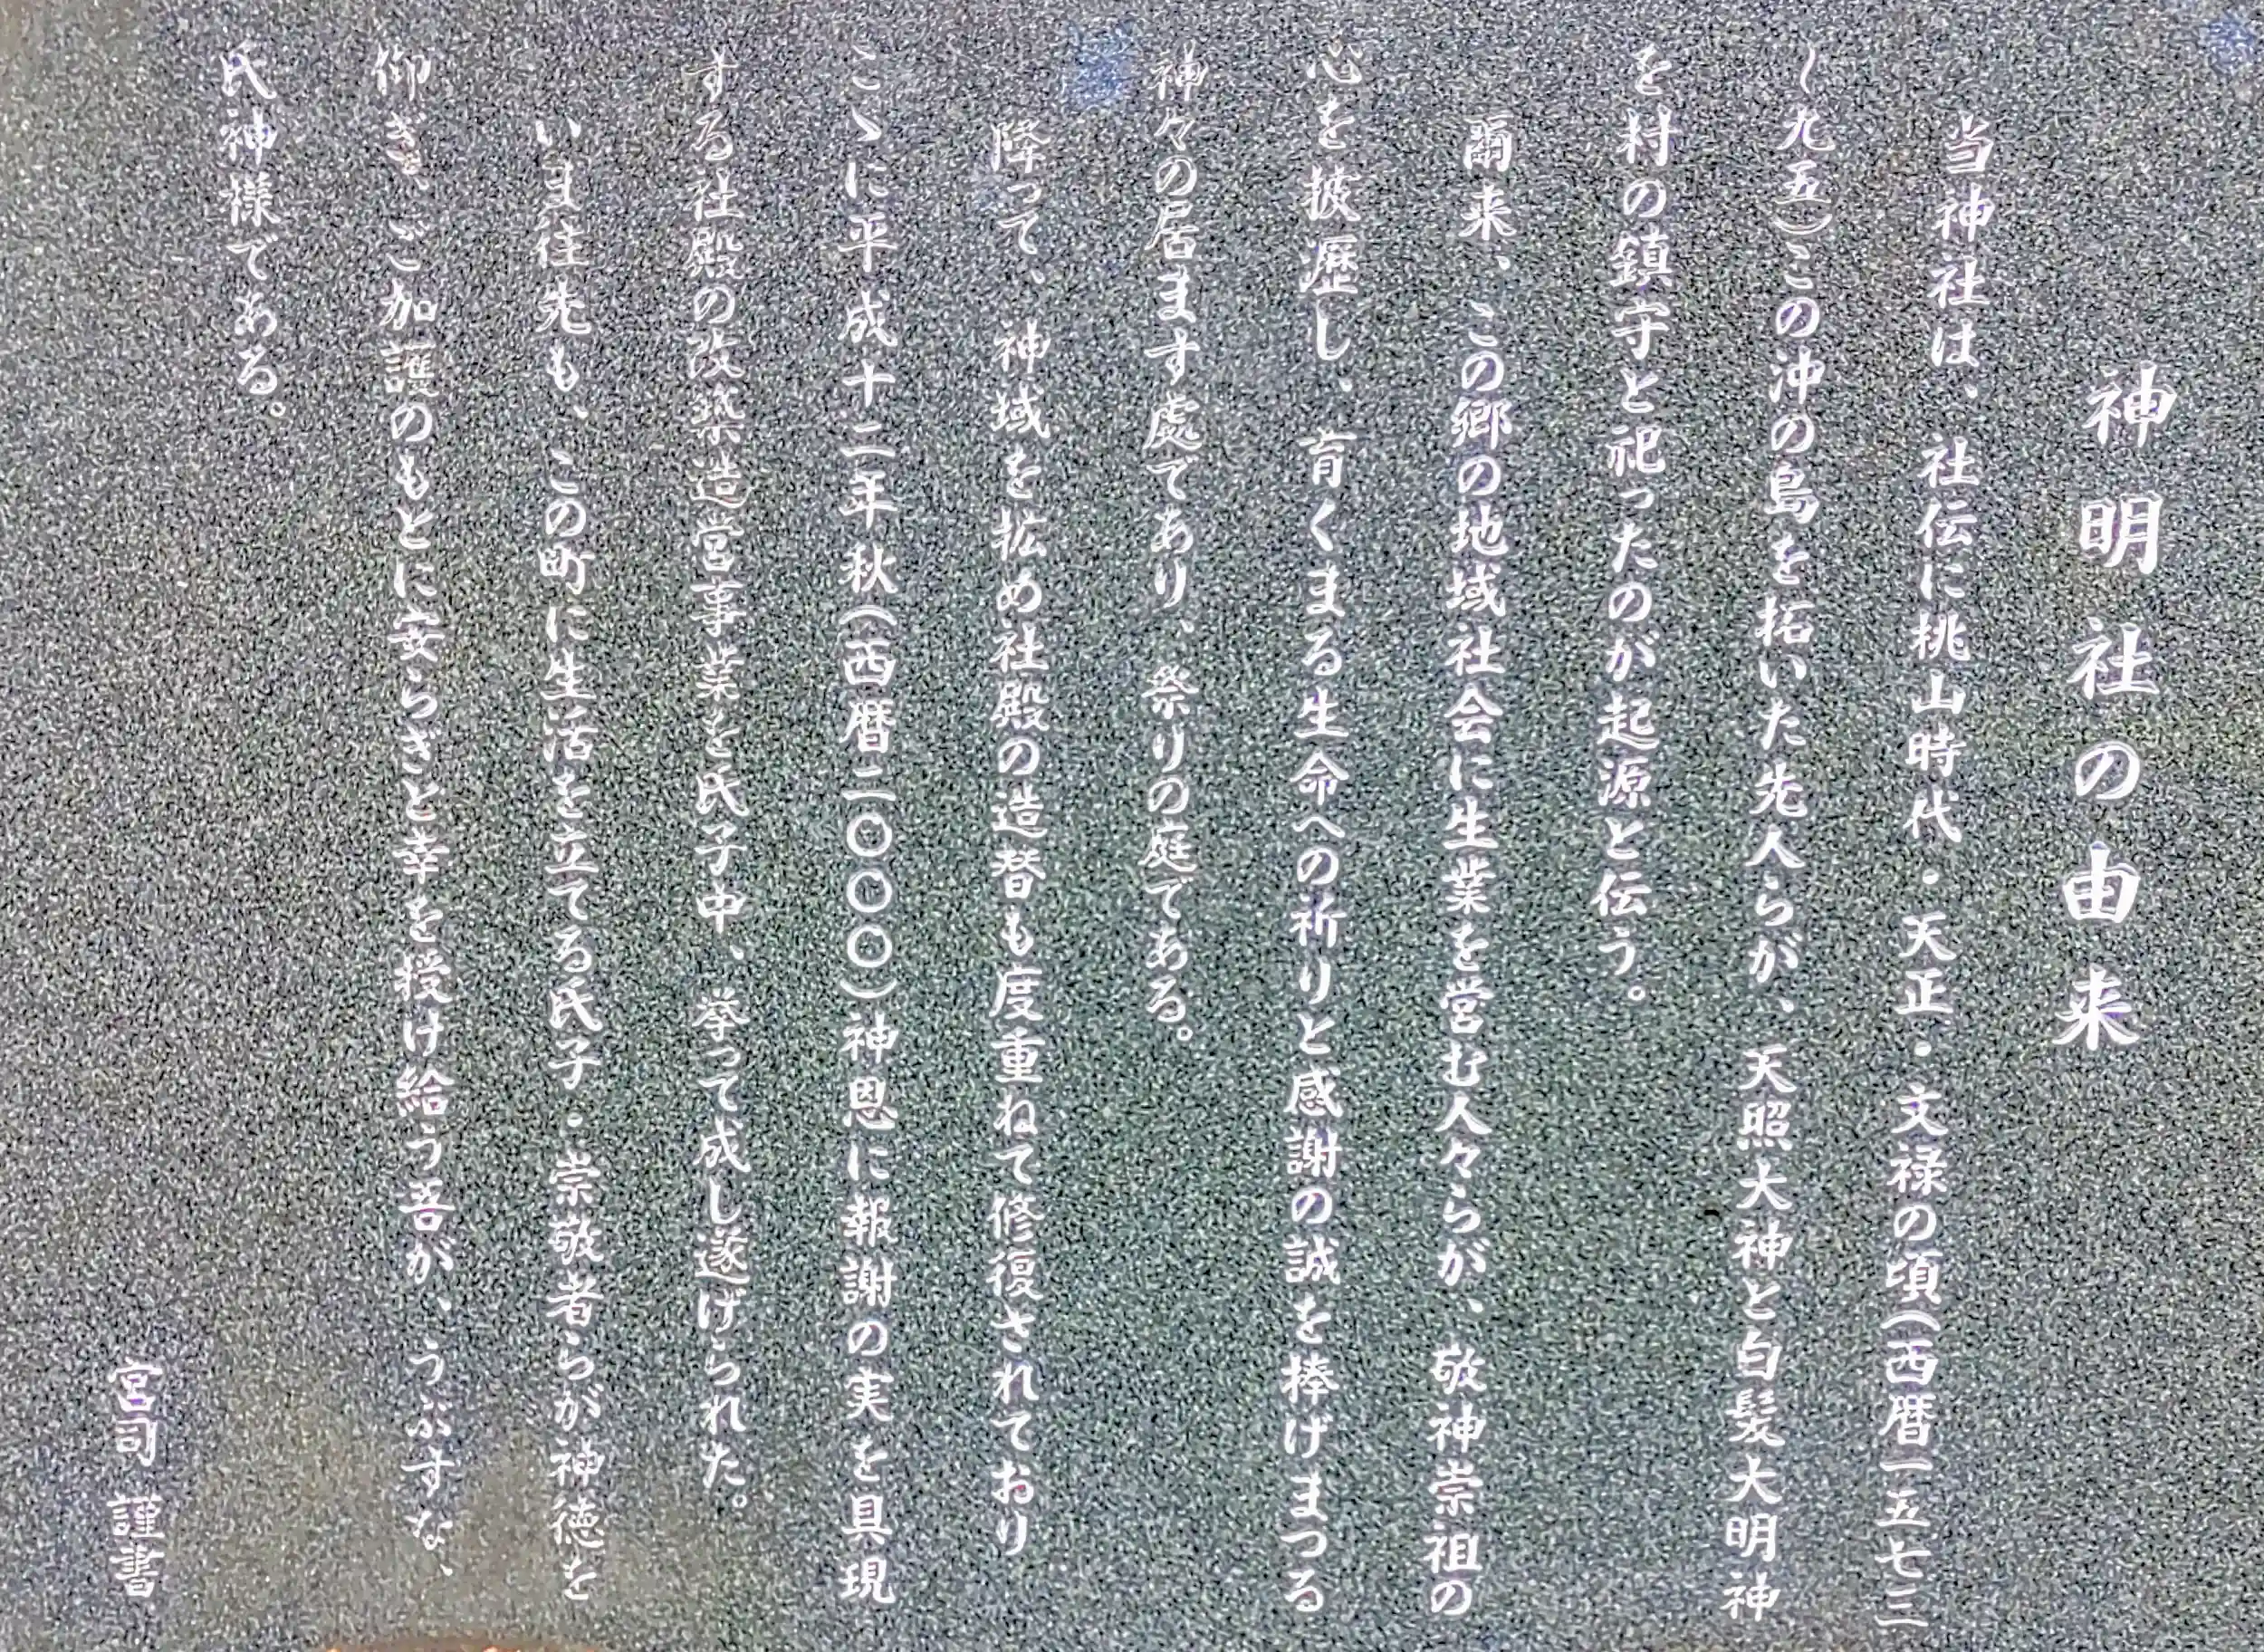 神明社の由来
当神社は、社伝に桃山時代・天正・文禄の頃(西暦一五七三
～九五)この沖の島を拓いた先人らが、天照大神と白髪大明神
を村の鎮守と祀ったのが起源と伝う。
爾来、この郷の地域社会に生業を営む人々らが、敬神崇祖の
心を披瀝し、育くまる生命への祈りと感謝の誠を棒げまつる
神々の居ます處であり、祭りの庭である。
降って、神域を拡め社殿の造替も度重ねて修復されており
こゝに平成十二年秋(西暦二〇〇〇)神恩に報謝の実を具現
する社殿の改築造営事業を氏子中、挙って成し遂げられた。
いま往先も、この町に生活を立てる氏子・崇敬者らが神徳を
仰ぎ、ご加護のもとに安らぎと幸を授け給う吾が、うぶすな、
氏神様である。
宮司 謹書